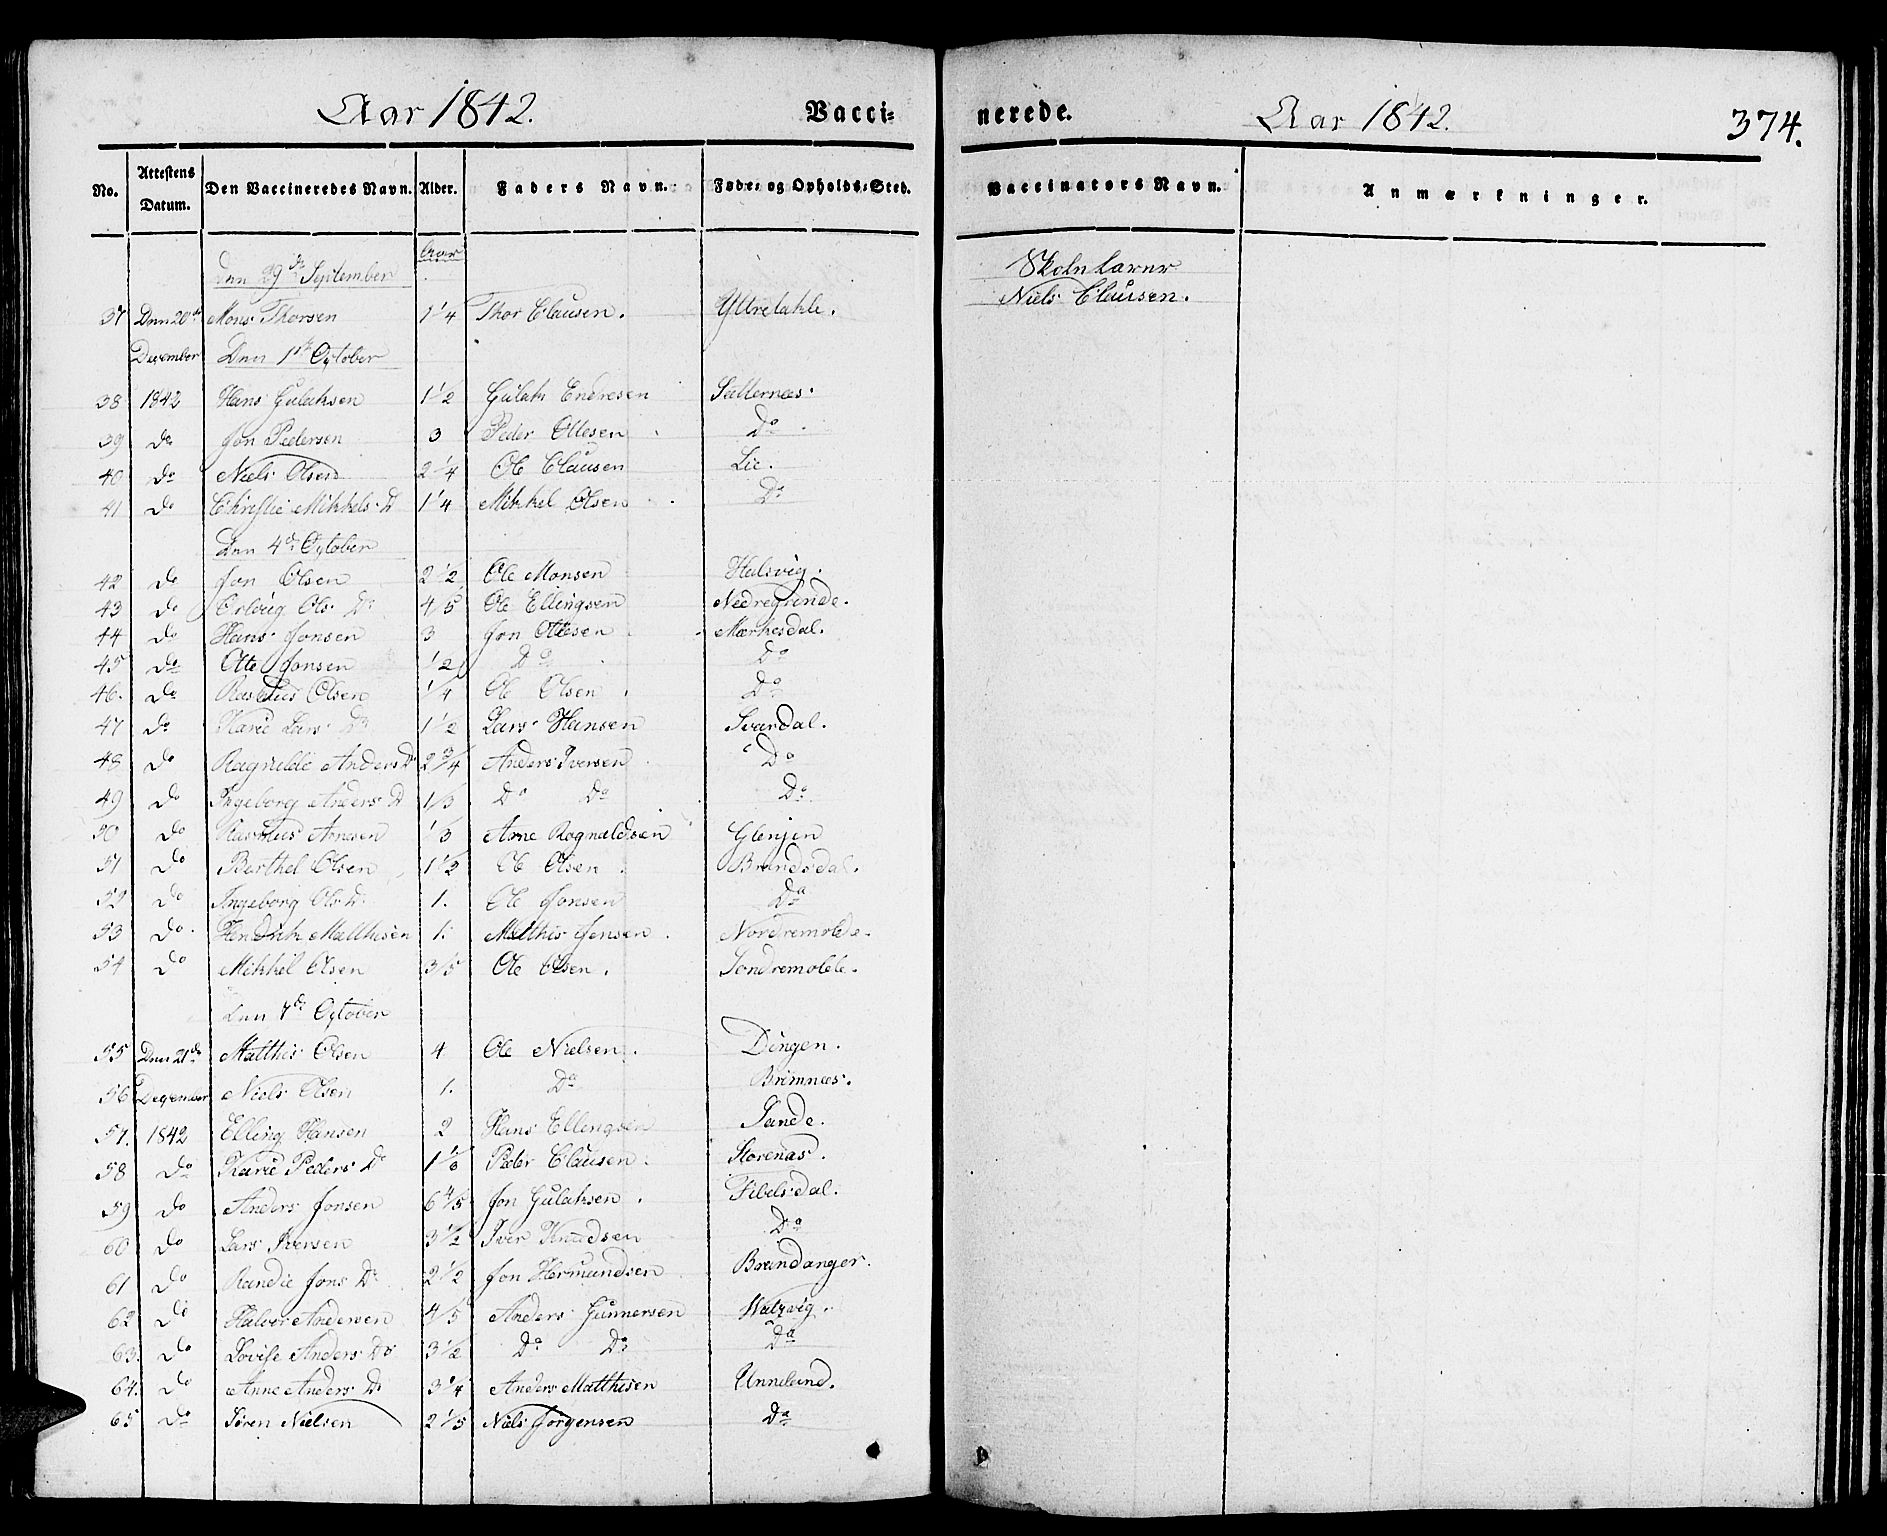 Aar 1842. Vacci= nerede. Aar 1842. 374.
No. Attestens Datum. Den Vaccineredes Navn. Alder. Faders Navn. Føde- og Opholds-Sted. Vaccinators Navn. Anmærkninger.
Den 29de September Aar Skolelærer
37 Den 20de Mons Thorsen 1 1/4 Thor Clausen. Ytreløhle. Niels Clausen.
December Den 1ste October
38 1842 Hans Gulaksen 1 1/2 Gulak Endresen Sætternæs.
39 do Jon Pedersen 3 Peder Ottesen Do
40 do Niels Olsen 2 1/4 Ole Clausen Lie.
41 do Christie Mikkels D 1 1/4 Mikkel Olsen Do
Den 4de October
42 do Jon Olsen 2 1/2 Ole Monsen Halsvig.
43 do Ols D 4/5 Ole Ellingsen Nedregrinde.
44 do Hans Jonsen 3 Jon Ottesen Mærkesdal.
45 do Otte Jonsen 1/2 Do Do
46. do Rasmus Olsen 1/4 Ole Olsen Do
47 do Karie Lars D 1 1/2 Lars Hansen Svardal.
48 do Ragnilde Anders D 2 3/4 Anders Iversen Do
49 do Ingeborg Anders D 1/3 Do Do Do
50 do Rasmus Arnesen 1/3 Arne Rognaldsen Glenjen
51 do Berthel Olsen 1 1/2 Ole Olsen Brandsdal.
52 do Ingeborg Ols D 1. Ole Jonsen Do
53 do Hendrik Matthisen 1. Matthis Jensen Nordremolde.
54 do Mikkel Olsen 3/5 Ole Olsen. Søndremolde.
Den 7de October
55 Den 21de Matthis Olsen 4 Ole Nielsen. Dingen.
56 December Niels Olsen 1. Do Brimnæs.
57. 1842 Elling Hansen 2 Hans Ellingsen Sande.
58 do Karie Peders D 1 Peder Clausen. Storenæs.
59 do Anders Jonsen 6 4/5 Jon Gulaksen. Fibelsdal.
60 do Lars Iversen 3 1/2 Iver Knudsen Do
61 do Randie Jons D 2 1/2 Jon Hermundsen Brandanger.
62 do Halvor Andersen 4/5 Anders Gunnersen Watzvig.
63. do Lovise Anders D 3 1/2 Do Do Do
64. do Anne Anders D 3 1/4 Anders Matthisen Unnelund.
65 do Søren Nielsen 2 1/5 Niels Jørgensen Do